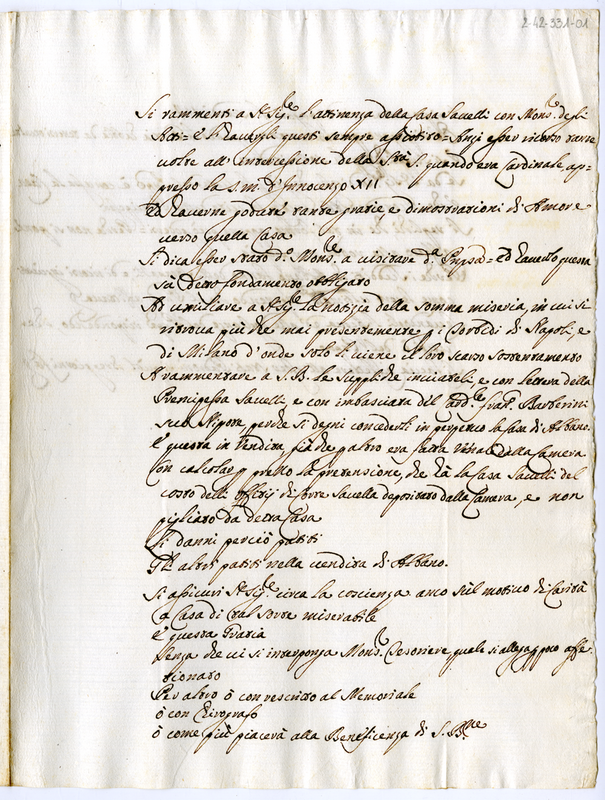 2-42-331-01
Si rammenti a N. Sig.re l'attinenza della Casa Savelli con Mons.r de
e questi sempre assistito = Anzi esser ricorso tante
volte all'Intercessione della S.tà S. quando era Cardinale, ap-
presso la S. M. d'Innocenzo XII
Ed haverne godute tante grazie e dimostrationi di Amore
verso quella Casa
Si dica esser stato d.o Mons.re a visitare d.a = Ed haverlo questa
Ad umiliare a N. Sig.re la notizia della somma miseria, in cui si
ritrova più che mai presentemente p i torbidi di Napoli, e
di Milano d'onde solo li viene il loro scarso sostentamento
A rammentare a S. B. le suppliche inviateli, e con lettera della
Prencipessa Savelli, e con imbasciata del Card.le Fran. Barberini
suo Nipote, perche si degni concederli in perpetuo la Casa di Albano.
e questa in vendita, già che p altro era stata della Camera
Con calcolar p prezzo la pretensione, che hà la Casa Savelli del
costo delli offitij di Corte Savella depositato dalla Camera, e non
pigliato da detta Casa
Li danni perciò patiti
Gli altri patiti nella vendita di Albano.
Si assicuri N. Sig.re circa la coscienza anco sul motivo di Carità
a Casa di tal sorte miserabile
e questa Grazia
senza che vi si interponga Mons.r Tesoriere, quale si allega p poco affe-
tionato
Per altro ò con rescritto al Memoriale
ò con Chirografo
ò come più piacerà alla Beneficenza di S. B.ne